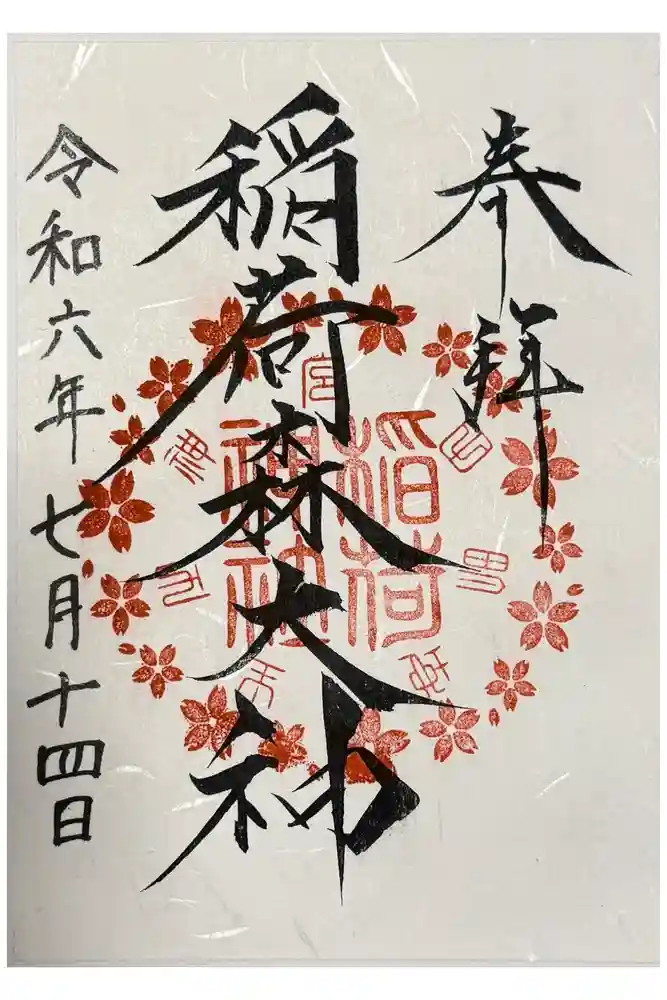 奉拝
稲荷森大神
稲荷
神社
令和六年七月十四日